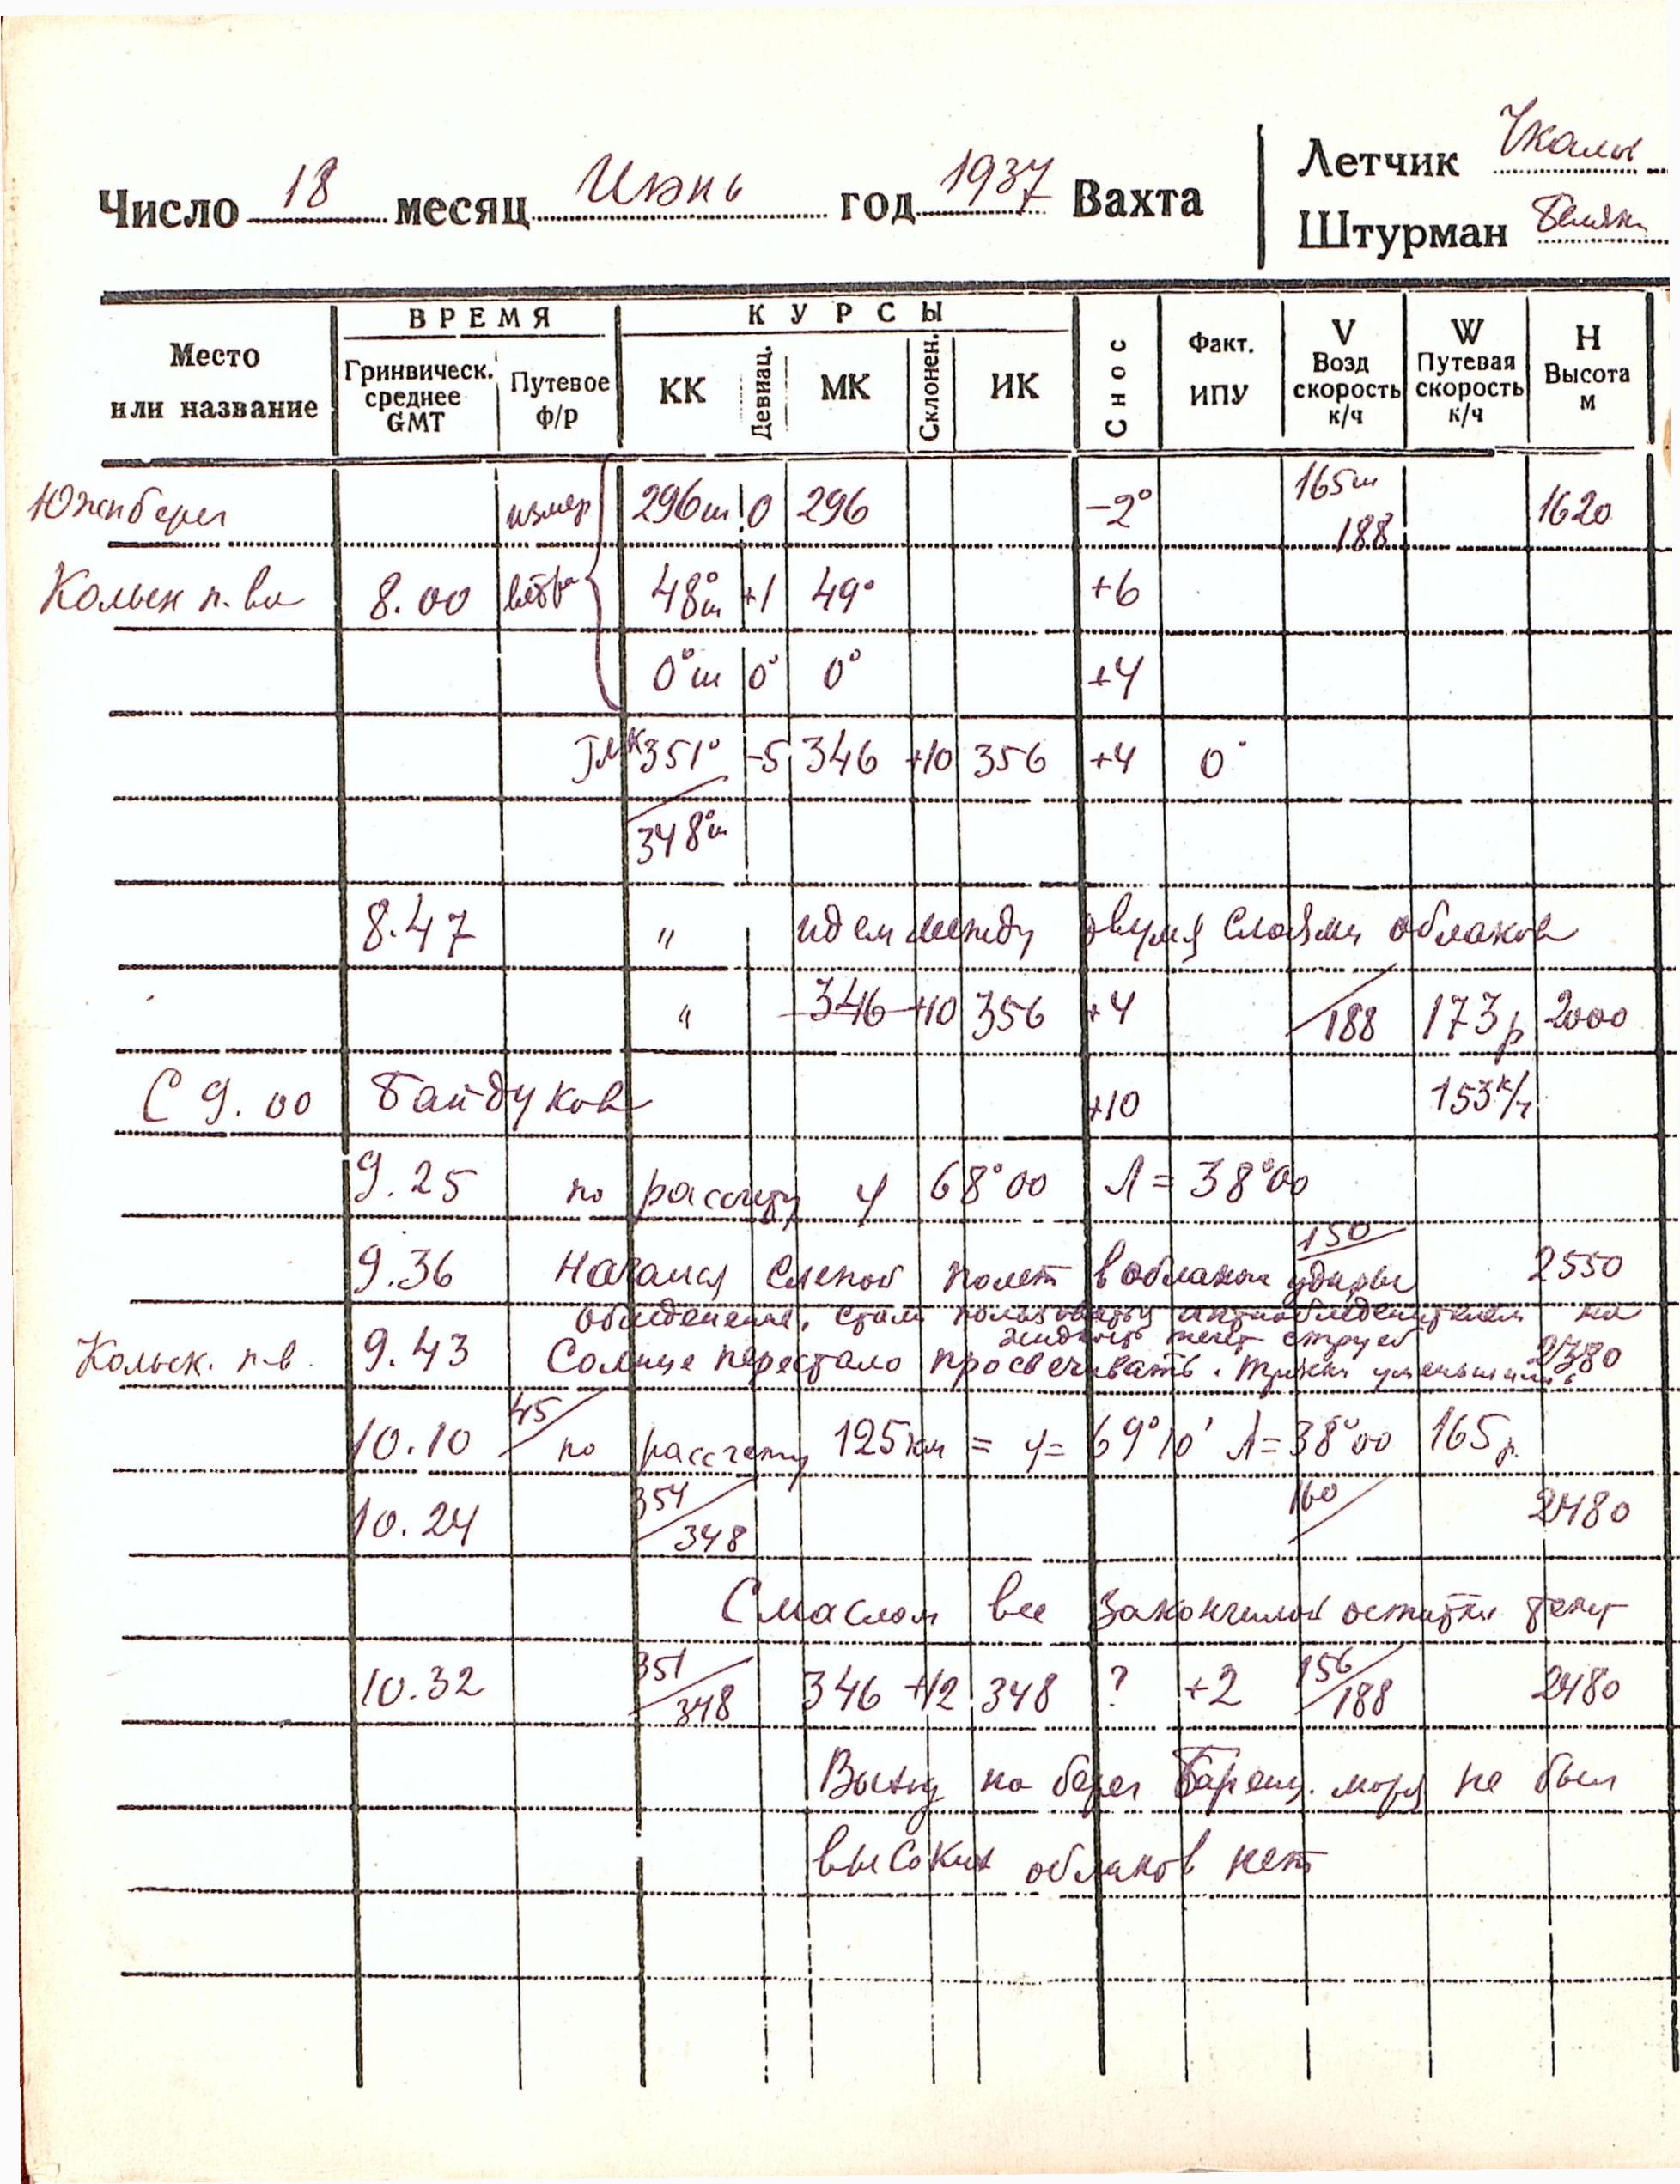 Число 18 месяц Июнь год 1937 Вахта
Летчик Чкалов
Штурман Беляков
Место или название
ВРЕМЯ
Гринвическ. среднее GMT
Путевое ф/р
КУРСЫ
КК
Девиац.
МК
Склонен.
ИК
Снос
Факт. ИПУ
V Возд скорость к/ч
W Путевая скорость к/ч
H Высота м
Южн берег измер 296ш 0 296 −2° 165ш 188 1620
Кольск п. ва 8.00 ветра 48°ш +1 49° +6
0°ш 0° 0° +4
ГМК 351° −5 346 +10 356 +4 0°
348°ш
8.47 " идем между двумя слоями облаков
" 346 +10 356 +4 /188 173р 2000
С 9.00 Байдуков +10 153 к/ч
9.25 по рассчету φ 68°00 Λ = 38°00
9.36 Начался слепой полет в облаках 150 2550
обледенение, стали пользоваться антиобледенителем на
жидкость течет струей
Кольск. п-в. 9.43 Солнце перестало просвечивать. 2380
10.10 45/ по рассчету 125 км = φ= 69°10' Λ=38°00 165р.
10.24 354/348 160/ 2480
С маслом все закончилось остатки
10.32 351/348 346 +12 348 ? +2 156/188 2480
Выход на берег Баренц. моря не был
высоких облаков нет